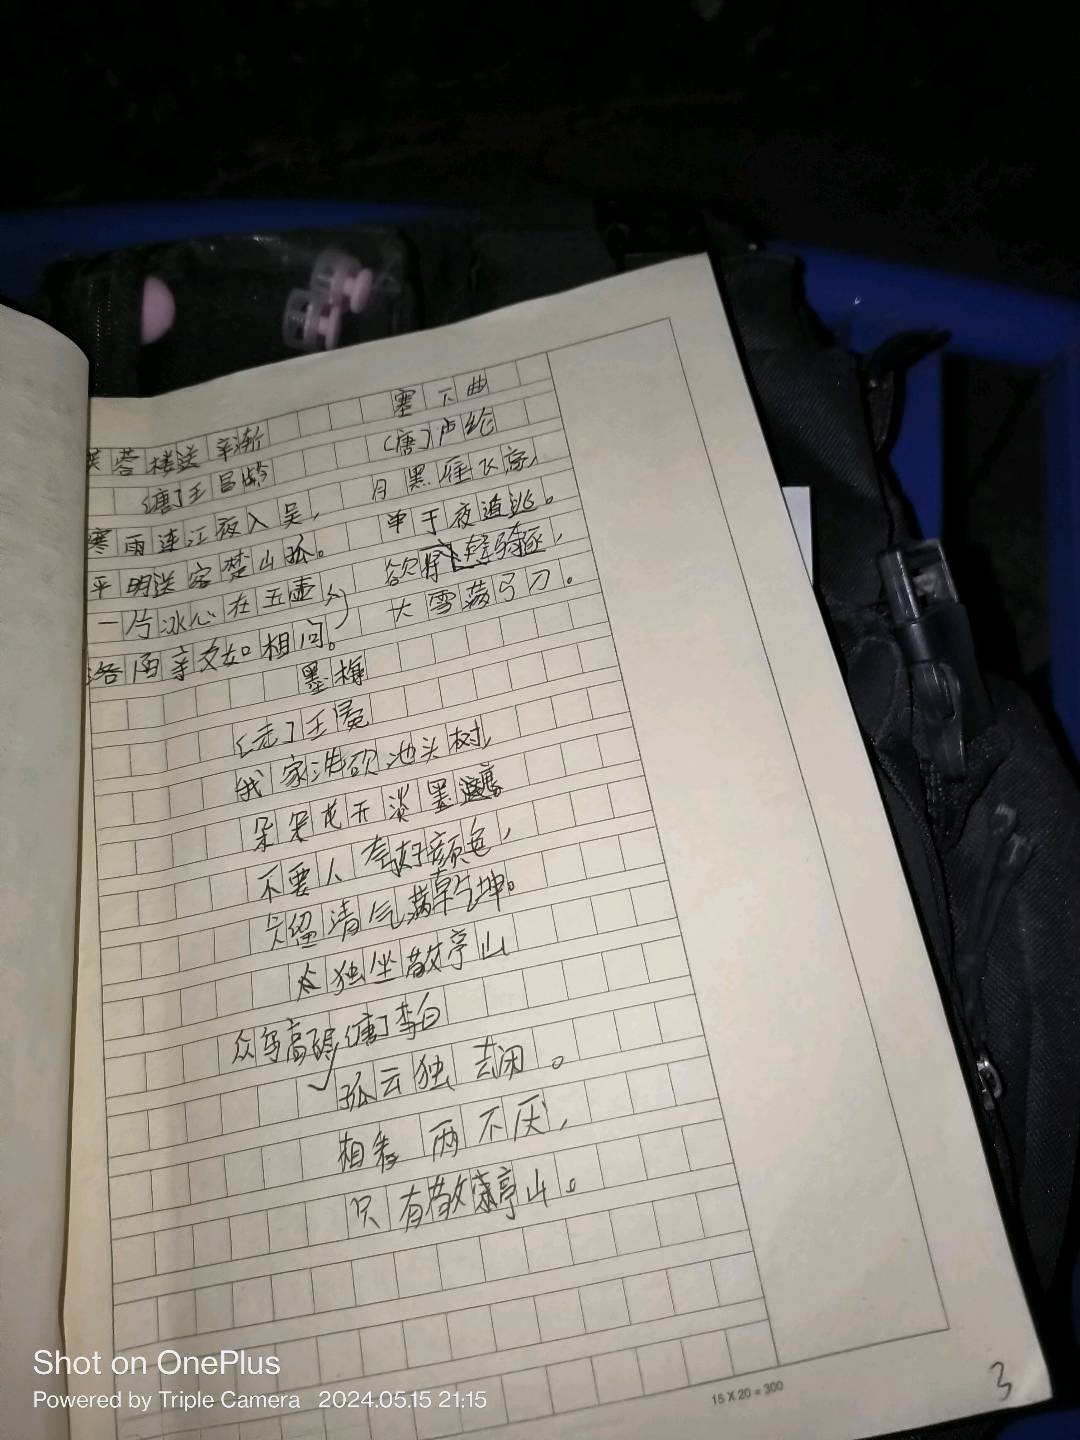 塞下曲
(唐)卢纶
月黑雁飞高,
单于夜遁逃。
欲将轻骑逐,
大雪满弓刀。
芙蓉楼送辛渐
(唐)王昌龄
寒雨连江夜入吴,
平明送客楚山孤。
一片冰心在玉壶,
洛阳亲友如相问。
墨梅
(元)王冕
我家洗砚池头树,
朵朵花开淡墨痕
不要人夸好颜色,
只留清气满乾坤。
独坐敬亭山
众鸟高 (唐)李白
孤云独去闲。
相看两不厌,
只有敬亭山。
15 X 20 = 300
3
Shot on OnePlus
Powered by Triple Camera 2024.05.15 21:15